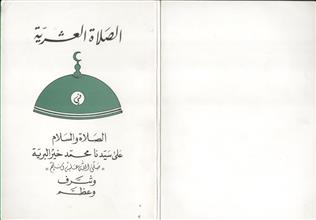 الصلاة العشرية
الصلاة والسلام
على سيدنا محمد خير البرية
صلى الله عليه وسلم
وشرف
وعظم